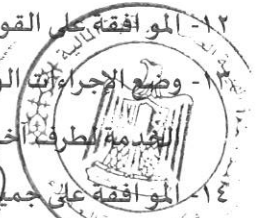 ١٢- الموافقة على القو
١٣- وضع الإجراءات ال
المقدمة لطرف آخ
١٤- الموافقة على جمي